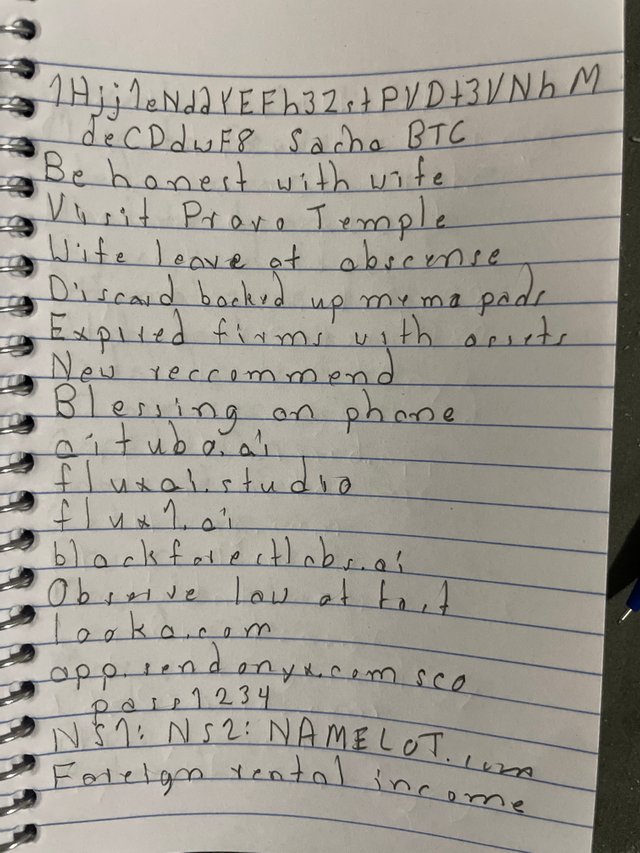 1Hjj1eNd2YEFh32stPVDt3VNhM
deCDdwF8 Sacha BTC
Be honest with wife
Visit Provo Temple
Wife leave of abscense
Discard backed up memo pads
Expired firms with assets
New reccommend
Blessing on phone
aitubo.ai
fluxai.studio
flux1.ai
blackforestlabs.ai
Observe law of fast
looka.com
app.sendonyx.com sco
pass1234
NS1: NS2: NAMELOT.com
Foreign rental income